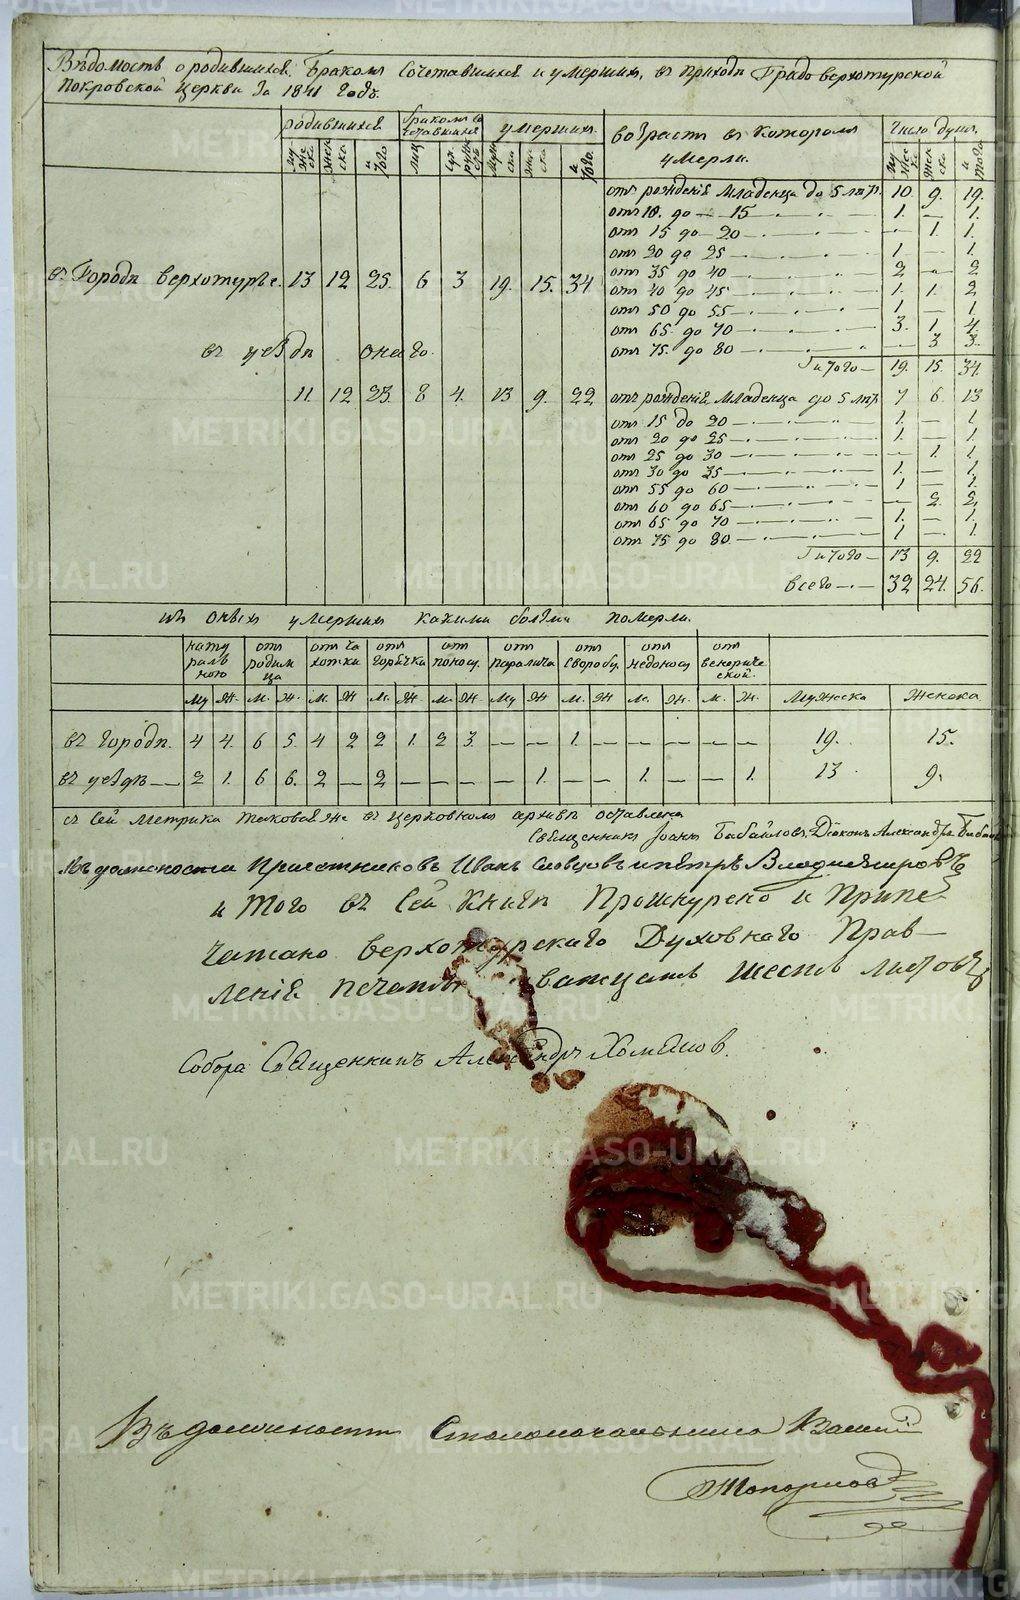 Вѣдомость о родившихся, Бракомъ Сочетавшихся и умершихъ, въ приходѣ Градо верхотурской
Покровской церкви за 1811 годъ.
родившихся
бракомъ со
четавшихся
умершихъ.
возрастъ въ котором
умерли.
Число душъ.
му
жес
ка
жен
ска
и
того
лиц
суп
ружес
му
ска
же
ска
и
того.
му
же
ска
жен
ска
и
того
отъ рожденія младенца до 5 лѣтъ. 10 9. 19.
отъ 10. до 15 1. — 1.
отъ 15 до 20 — 1. 1.
отъ 20 до 25 1 — 1.
въ Городѣ верхотурье. 13 12 25. 6 3 19. 15. 34
отъ 35 до 40 2 — 2
отъ 40 до 45 1. 1. 2
отъ 50 до 55 1 — 1
отъ 65 до 70 3. 1. 4.
въ уездѣ онаго.
отъ 75 до 80 — 3 3.
Итого — 19. 15. 34.
11. 12 23. 8 4. 13 9. 22
отъ рожденія младенца до 5 лѣтъ. 7 6. 13
отъ 15 до 20 1. — 1
отъ 20 до 25 1. — 1
отъ 25 до 30 — 1. 1.
отъ 30 до 35 1. — 1
отъ 55 до 60 1 — 1.
отъ 60 до 65 — 2. 2.
отъ 65 до 70 1. — 1.
отъ 75 до 80 1 — 1.
Итого — 13 9. 22
всего — 32 24. 56.
изъ оныхъ умершихъ какими болѣзни померли.
нату
раль
ною
отъ
родим
ца
отъ ча
хотки
отъ
горячка
отъ
поносу.
отъ
паралича
отъ
своробу
отъ
недоносу
отъ
венериче
ской.
му ж. м. ж. м. ж м. ж. м. ж. му ж м. ж м. ж. м. ж. Мужеска Женска
въ городѣ. 4 4. 6 5. 4 2 2 1. 2 3. — — 1. — — — — — 19. 15.
въ уездѣ — 2 1. 6 6. 2 — 2 — — — — 1. — — 1. — — 1. 13 9.
съ сей метрика таковая же въ церковномъ архивѣ оставлена
Священникъ Іоанн Бабайловъ, Діаконъ Александръ
въ должности Причетниковъ Иванъ Словцовъ и петръ Владимировъ
и того въ сей книгѣ Прошнурено и Припе
чатано верхотурскаго Духовнаго Прав—
ленія печатью дватцать шесть листовъ
Собора Священникъ Александръ Хомяков.
METRIKI.GASO-URAL.RU
Въ должности Столоначальника Василій
Топорков